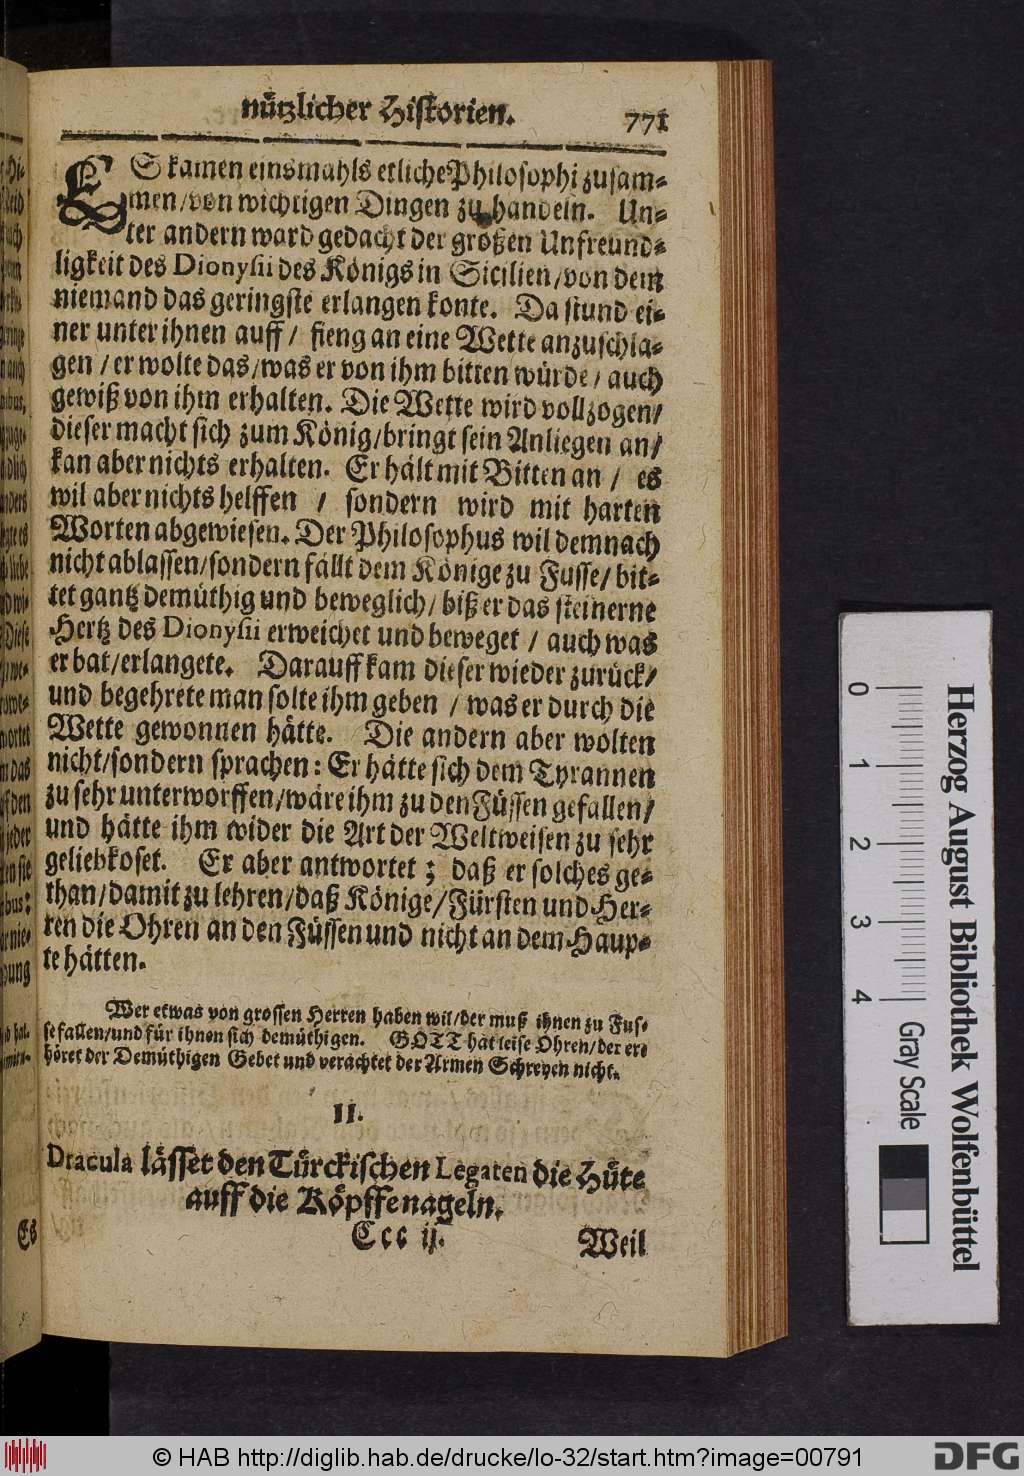 nützlicher Historien. 771
ES kamen einsmahls etliche Philosophi zusam-
men/von wichtigen Dingen zu handeln. Un-
ter andern ward gedacht der großen Unfreund-
ligkeit des Dionysii des Königs in Sicilien/von dem
niemand das geringste erlangen konte. Da stund ei-
ner unter ihnen auff/ fieng an eine Wette anzuschla-
gen / er wolte das/was er von ihm bitten würde/ auch
gewiß von ihm erhalten. Die Wette wird vollzogen/
dieser macht sich zum König/bringt sein Anliegen an/
kan aber nichts erhalten. Er hält mit Bitten an / es
wil aber nichts helffen / sondern wird mit harten
Worten abgewiesen. Der Philosophus wil demnach
nicht ablassen/sondern fällt dem Könige zu Fusse/ bit-
tet gantz demüthig und beweglich/ biß er das steinerne
Hertz des Dionysii erweichet und beweget / auch was
er bat/erlangete. Darauff kam dieser wieder zurück/
und begehrete man solte ihm geben / was er durch die
Wette gewonnen hätte. Die andern aber wolten
nicht/sondern sprachen: Er hätte sich dem Tyrannen
zu sehr unterworffen/wäre ihm zu den Füssen gefallen/
und hätte ihm wider die Art der Weltweisen zu sehr
geliebkoset. Er aber antwortet; daß er solches ge-
than/damit zu lehren/daß Könige/Fürsten und Her-
ren die Ohren an den Füssen und nicht an dem Haup-
te hätten.
Wer etwas von grossen Herren haben wil/der muß ihnen zu Fus-
se fallen/und für ihnen sich demüthigen. GOTT hat leise Ohren/der er-
höret der Demüthigen Gebet und verachtet der Armen Schreyen nicht.
II.
Dracula lässet den Türckischen Legaten die Hüte
auff die Köpffe nageln.
Ccc ij. Weil
Es
0 1 2 3 4
Herzog August Bibliothek Wolfenbüttel
Gray Scale
© HAB http://diglib.hab.de/drucke/lo-32/start.htm?image=00791
DFG